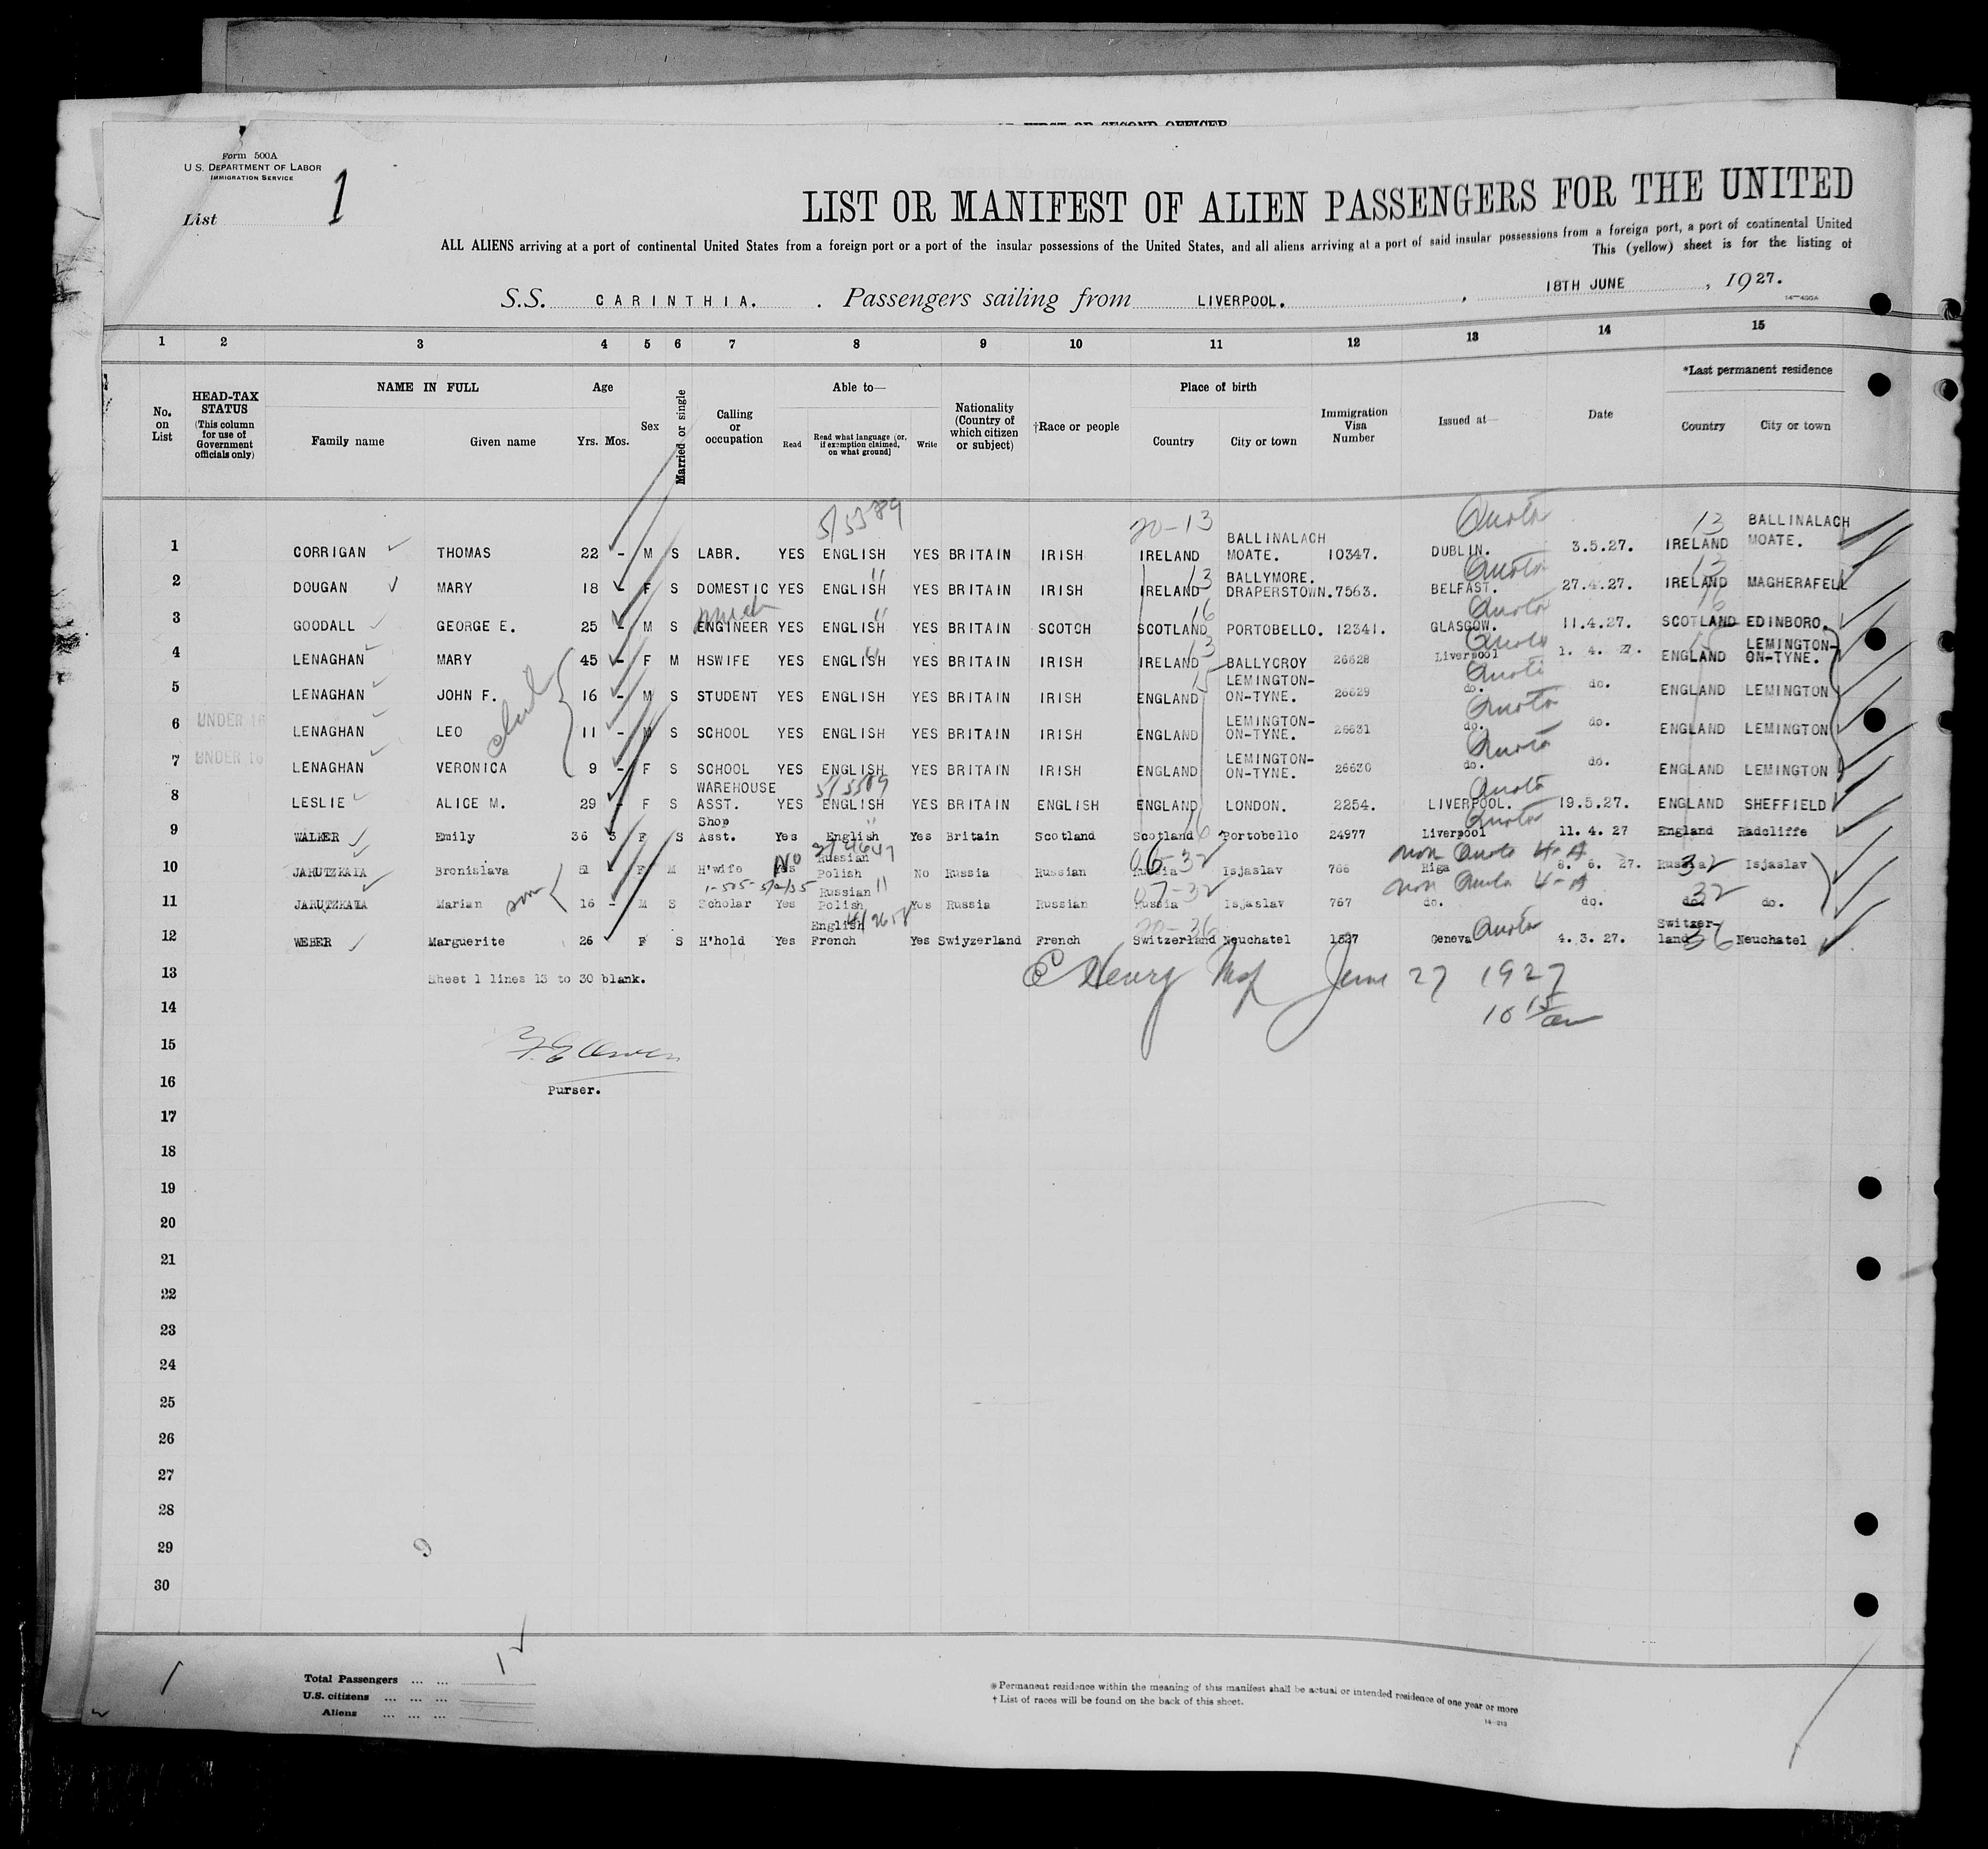 Form 500A
U.S. DEPARTMENT OF LABOR
IMMIGRATION SERVICE
List 1
LIST OR MANIFEST OF ALIEN PASSENGERS FOR THE UNITED
ALL ALIENS arriving at a port of continental United States from a foreign port or a port of the insular possessions of the United States, and all aliens arriving at a port of said insular possessions from a foreign port, a port of continental United
This (yellow) sheet is for the listing of
S.S. CARINTHIA. Passengers sailing from LIVERPOOL. , 18TH JUNE , 1927.
1 2 3 4 5 6 7 8 9 10 11 12 13 14 15
No. on List
HEAD-TAX STATUS (This column for use of Government officials only)
NAME IN FULL
Family name Given name
Age
Yrs. Mos.
Sex
Married or single
Calling or occupation
Able to—
Read Read what language [or, if exemption claimed, on what ground] Write
Nationality (Country of which citizen or subject)
†Race or people
Place of birth
Country City or town
Immigration Visa Number
Issued at—
Date
*Last permanent residence
Country City or town
1 CORRIGAN THOMAS 22 - M S LABR. YES ENGLISH YES BRITAIN IRISH IRELAND BALLINALACH MOATE. 10347. DUBLIN. Quota 3.5.27. IRELAND 13 BALLINALACH MOATE.
2 DOUGAN MARY 18 - F S DOMESTIC YES ENGLISH YES BRITAIN IRISH IRELAND 13 BALLYMORE. DRAPERSTOWN. 7563. BELFAST. Quota 27.4.27. IRELAND 13 MAGHERAFELL
3 GOODALL GEORGE E. 25 - M S ENGINEER YES ENGLISH YES BRITAIN SCOTCH SCOTLAND 16 PORTOBELLO. 12341. GLASGOW. Quota 11.4.27. SCOTLAND 16 EDINBORO.
4 LENAGHAN MARY 45 - F M HSWIFE YES ENGLISH YES BRITAIN IRISH IRELAND 13 BALLYCROY 26628 Liverpool Quota 1. 4. 27. ENGLAND 15 LEMINGTON-ON-TYNE.
5 LENAGHAN JOHN F. 16 - M S STUDENT YES ENGLISH YES BRITAIN IRISH ENGLAND 15 LEMINGTON-ON-TYNE. 26629 do. Quota do. ENGLAND LEMINGTON
6 UNDER 16 LENAGHAN LEO 11 - M S SCHOOL YES ENGLISH YES BRITAIN IRISH ENGLAND LEMINGTON-ON-TYNE. 26631 do. Quota do. ENGLAND LEMINGTON
7 UNDER 16 LENAGHAN VERONICA 9 - F S SCHOOL YES ENGLISH YES BRITAIN IRISH ENGLAND LEMINGTON-ON-TYNE. 26630 do. Quota do. ENGLAND LEMINGTON
8 LESLIE ALICE M. 29 - F S WAREHOUSE ASST. YES ENGLISH YES BRITAIN ENGLISH ENGLAND LONDON. 2254. LIVERPOOL. Quota 19.5.27. ENGLAND SHEFFIELD
9 WALKER Emily 36 3 F S Shop Asst. Yes English Yes Britain Scotland Scotland 16 Portobello 24977 Liverpool Quota 11. 4. 27 England Radcliffe
10 JARUTZKAIA Bronislava 51 F M H'wife Yes No Russian Polish No Russia Russian Russia Isjaslav 766 Riga Non Quota 4-A 6. 6. 27. Russia 32 Isjaslav
11 JARUTZKAIA Marian son 16 - M S Scholar Yes Russian Polish Yes Russia Russian Russia Isjaslav 767 do. Non Quota 4-A do. do. 32 do.
12 WEBER Marguerite 26 F S H'hold Yes English French Yes Swiyzerland French Switzerland Neuchatel 1527 Geneva Quota 4. 3. 27. Switzer-land 36 Neuchatel
13 Sheet 1 lines 13 to 30 blank.
June 27 1927
14
10 15 am
15
16
Purser.
17
18
19
20
21
22
23
24
25
26
27
28
29
30
Total Passengers ... ...
U.S. citizens ... ... ...
Aliens ... ... ...
* Permanent residence within the meaning of this manifest shall be actual or intended residence of one year or more
† List of races will be found on the back of this sheet.
14—213